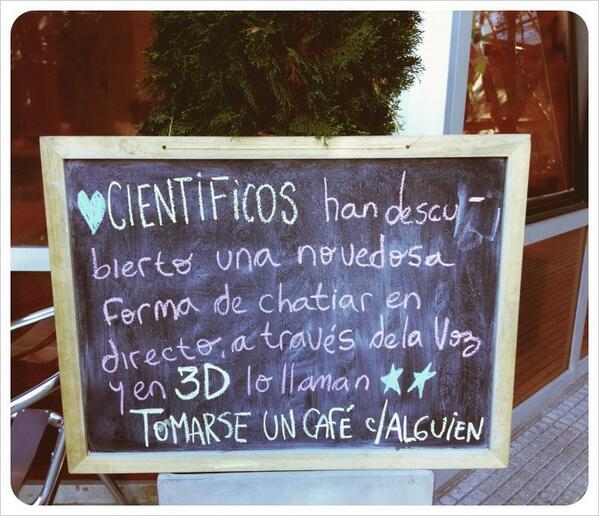 CIENTÍFICOS han descu-
bierto una novedosa
forma de chatiar en
directo, a través de la Voz
y en 3D lo llaman
TOMARSE UN CAFÉ c/ALGUIEN